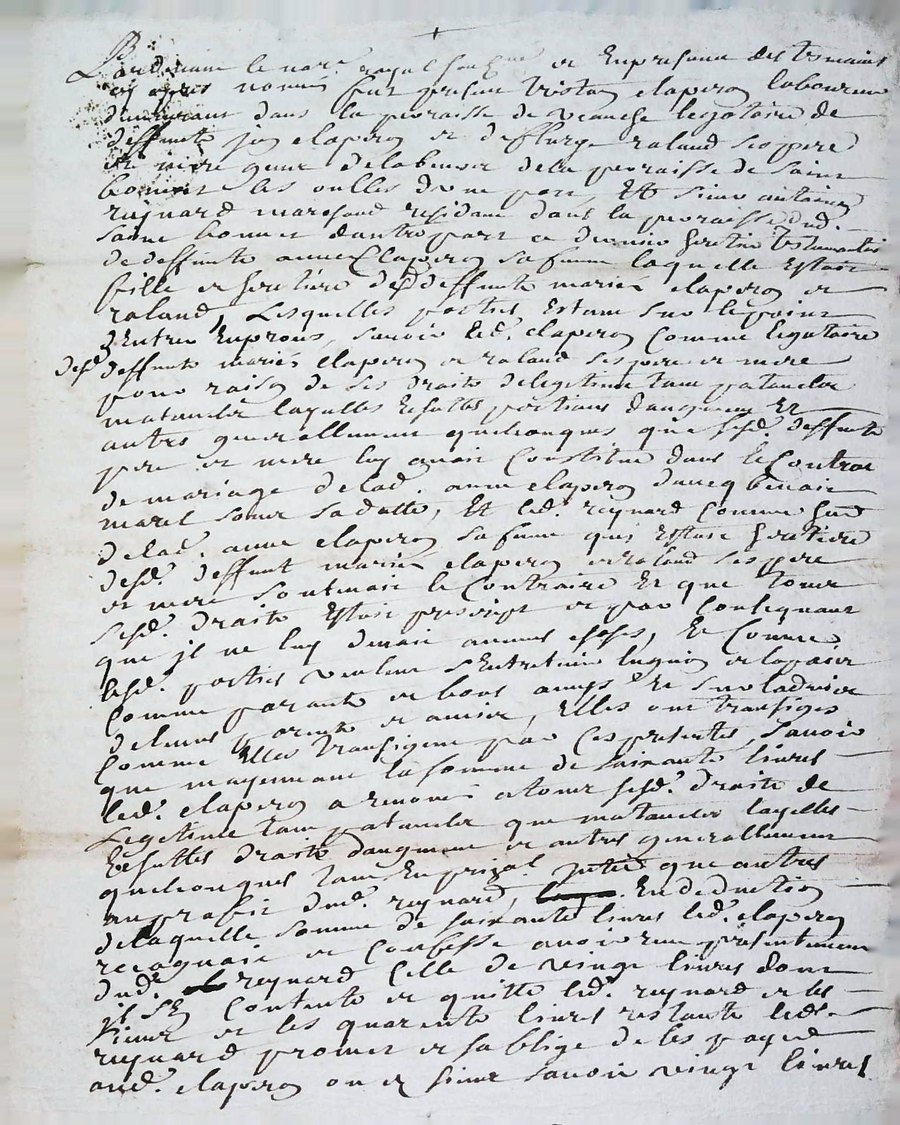 Pardevant le nore royal sousne et En presance des tesmoins
cy apres només fut presant tristan claperon laboureur
demurant dans la paroisse de legatoire de
deffunte jean claperon et de fleurye raland ses pere
et mere quand vivoit de la paroisse de Saint
bonnet les oulles d'une part, Et Sieur antoine
reynard marchand residant dans la paroisse dud.
saint bonnet d'autre part ce dernier heritier testamentere
de deffunte anne Claperon sa femme laquelle Estoit
fille et heretiere desd deffunts mariés claperon et
raland, Lesquelles parties Estant sur le point
d'Entrer En proces, savoir led. claperon comme legatoire
desd deffunts mariés claperon et raland ses pere et mere
pour raison de ses droits de legitime tant paternelle
maternelle laquelles et suttes portions d'augment Et
autres generallement quelconques que sesd. deffunts
pere et mere luy avoit Constitué dans le Contrat
de mariage de lad. anne claperon
marel sous sa datte, Et led. reynard comme
de lad. anne claperon sa femme quy Estoit heretiere
desd. deffunt mariés claperon et raland ses pere
et mere soutenoit le Contraire Et que tous
sesd. droits Estoit prescript et par Consequant
que jl ne luy devoit aucunes choses, Et Comme
lesd. parties veulent s'Entretenir l'union et la paix
Comme parants et bons amys Et sur l'advis
de leurs parents et amis, Elles ont transiges
comme Elles transigent par ces presantes, savoir
que moyennant la somme de soixante livres
led. claperon a renoncé a tous sesd. droits de
Legitime tant paternelle que maternelle laquelles
Et suttes droits d'augment et autres generallement
quelconques tant En prisal que autres
au profit dud. reynard, En deduction
de laquelle somme de soixante livres led. claperon
recognoit et Confesse avoir reçu presantement
dud. reynard Celle de vingt livres dont
jl s'En contente et quitte led. reynard et les
siens et les quarente livres restants led.
reynard promet et s'oblige de les payer
aud. claperon ou es siens savoir vingt livres